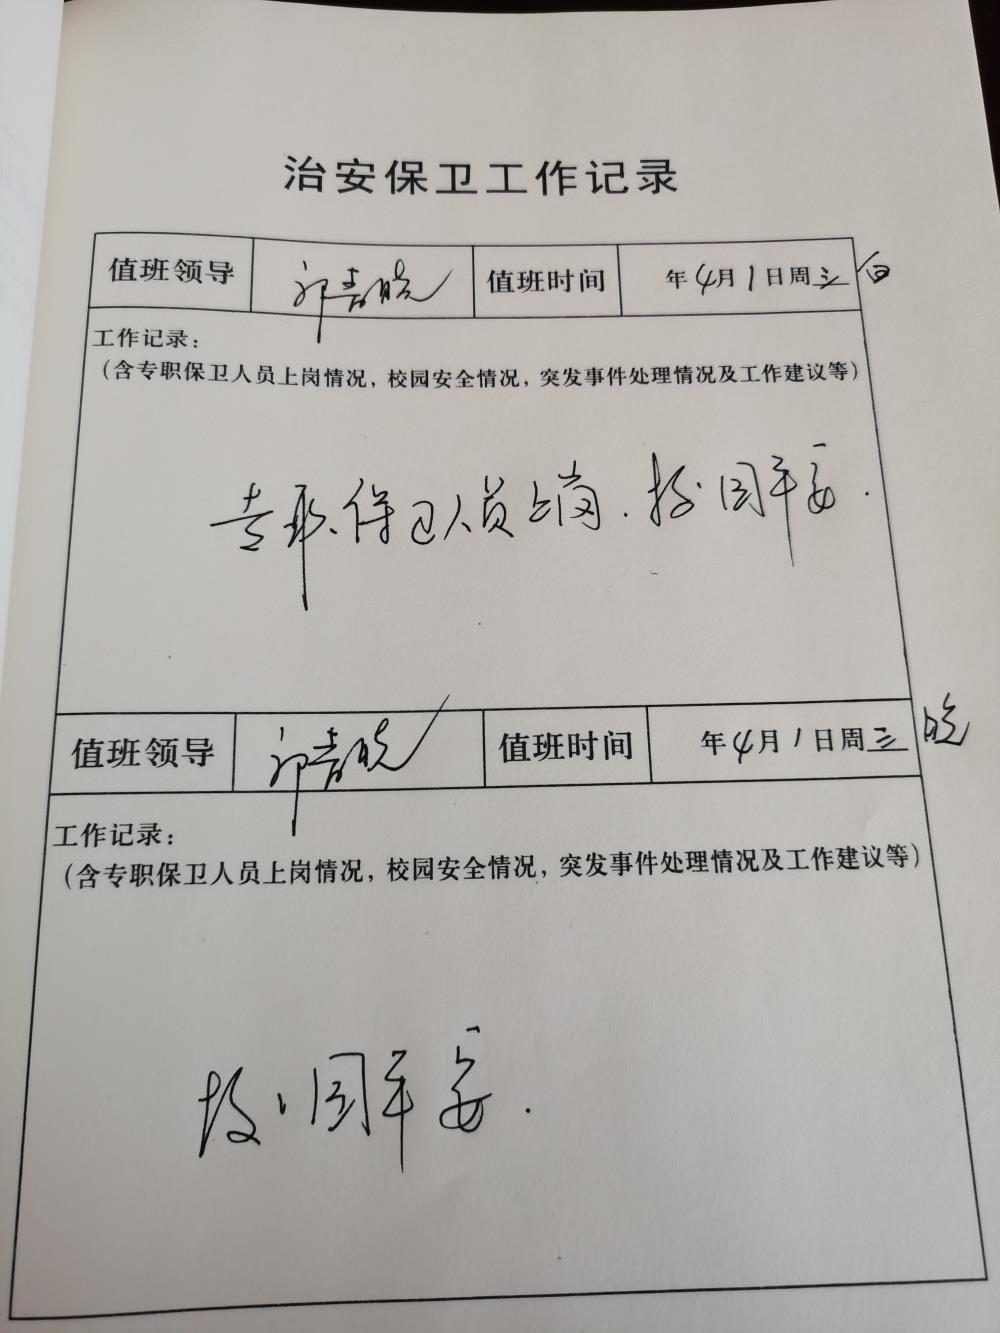 治安保卫工作记录
值班领导 值班时间 年4月1日周三 白
工作记录：
（含专职保卫人员上岗情况，校园安全情况，突发事件处理情况及工作建议等）
专职保卫人员上岗．校园平安．
值班领导 值班时间 年4月1日周三 晚
工作记录：
（含专职保卫人员上岗情况，校园安全情况，突发事件处理情况及工作建议等）
校园平安．